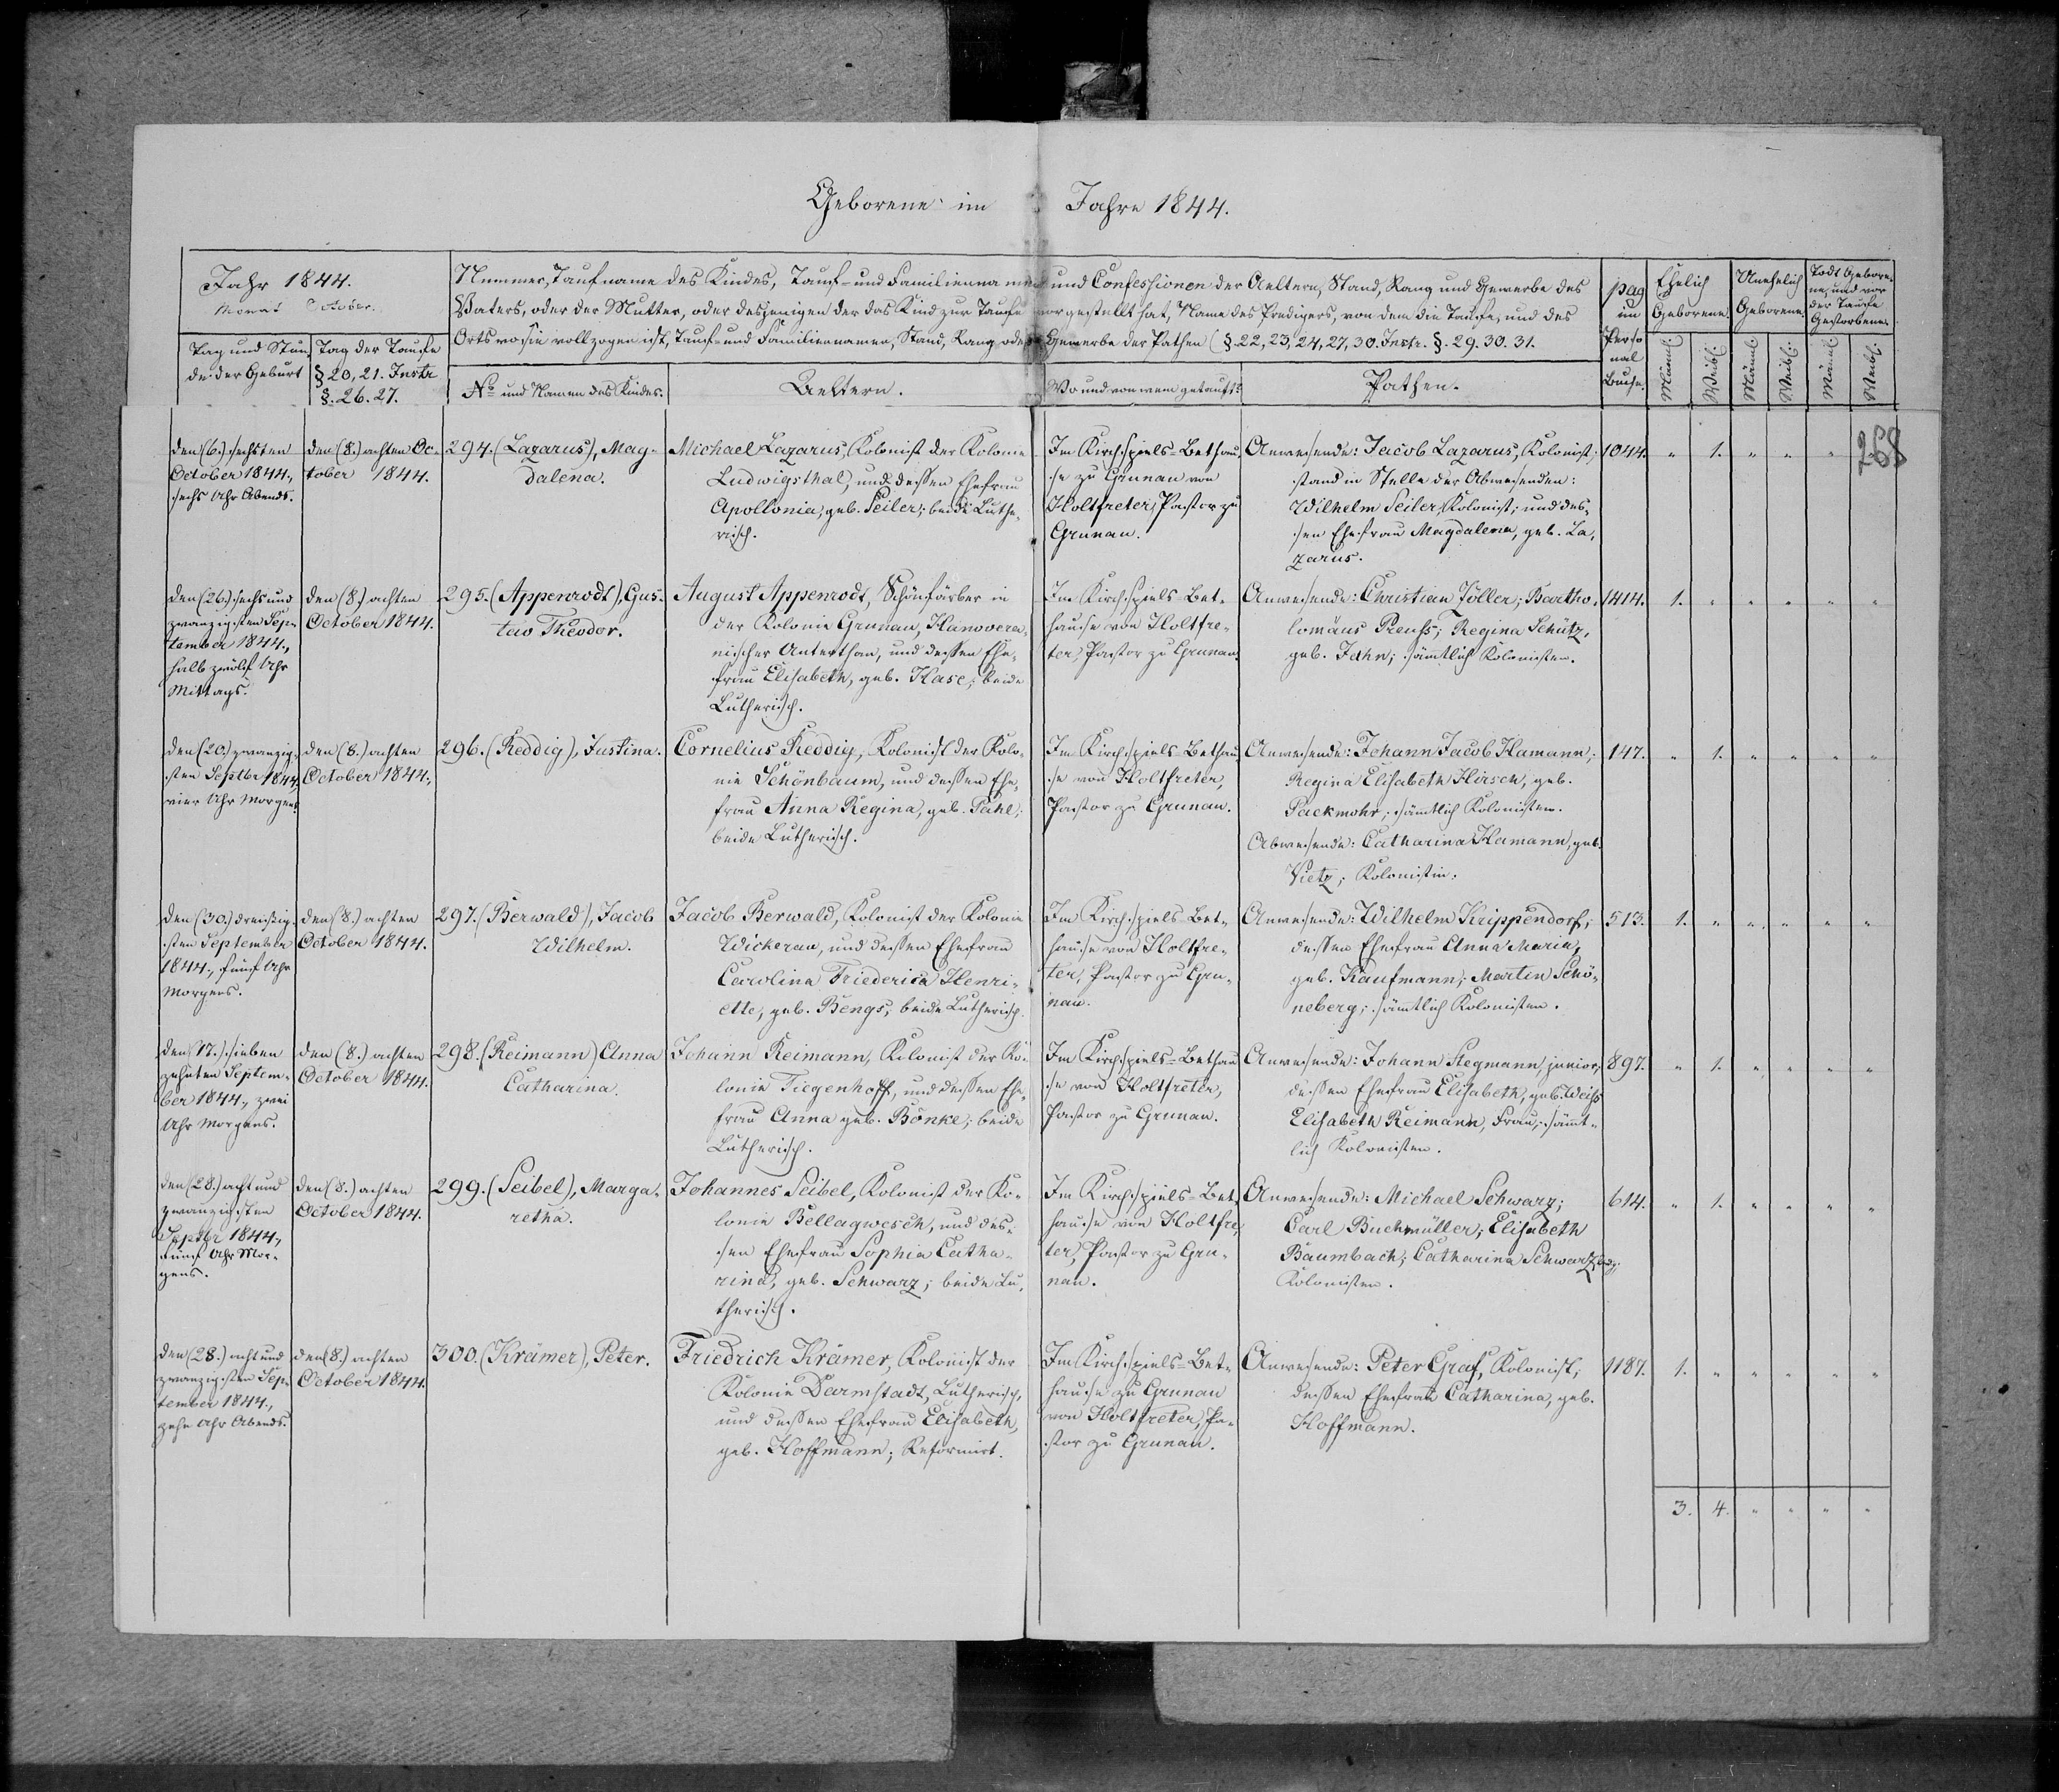 Geborene im Jahre 1844.
Jahr 1844.
Monat October.
Tag und Stun
de der Geburt
Tag der Taufe
§ 20, 21. Instr
§. 26. 27.
Nummer, Taufname des Kindes, Tauf- und Familiennamen und Confessionen der Aeltern, Stand, Rang und Gewerbe des
Vaters, oder der Mutter, oder desjenigen der das Kind zur Taufe vorgestellt hat, Name des Predigers, von dem die Taufe, und des
Orts wo sie vollzogen ist, Tauf- und Familiennamen, Stand, Rang oder Gewerbe der Pathen (§. 22, 23, 24, 27, 30. Instr. §. 29. 30. 31.
No und Namen des Kindes.
Aeltern.
Wo und von wem getauft?
Pathen.
pag
im
Perso
nal
Buche.
Ehelich
Geborene.
Unehelich
Geborene.
Todt Gebore-
ne, und vor
der Taufe
Gestorbene.
Männl.
Weibl.
Männl.
Weibl.
Männl.
Weibl.
den (6.) sechsten
October 1844.,
sechs Uhr Abends.
den (8.) achten Oc-
tober 1844.
294. (Lazarus), Mag-
dalena.
Michael Lazarus, Kolonist der Kolonie
Ludwigsthal, und dessen Ehefrau
Apollonia, geb. Seiler; beide Luthe-
risch.
Im Kirchspiels-Bethau-
se zu Grunau von
Holtfreter, Pastor zu
Grunau.
Anwesende: Jacob Lazarus, Kolonist;
stand in Stelle der Abwesenden:
Wilhelm Seiler, Kolonist; und des-
sen Ehefrau Magdalena, geb. La-
zarus.
1044. " 1. " " " 268
den (26.) sechs und
zwanzigsten Sep-
tember 1844.,
halb zwölf Uhr
Mittags.
den (8.) achten
October 1844.
295. (Appenrodt), Gus-
tav Theodor.
August Appenrodt, Schönfärber in
der Kolonie Grunau, Hanovera-
nischer Unterthan, und dessen Ehe-
frau Elisabeth, geb. Hase; beide
Lutherisch.
Im Kirchspiels-Bet-
hause von Holtfre-
ter, Pastor zu Grunau.
Anwesende: Christian Jöller; Bartho-
lomäus Preuss; Regina Schütz,
geb. Jahn; sämtlich Kolonisten.
1414. 1. " " " " "
den (20.) zwanzig-
sten Septbr 1844.,
vier Uhr Morgens.
den (8.) achten
October 1844.,
296. (Reddig), Justina.
Cornelius Reddig, Kolonist der Kolo-
nie Schönbaum, und dessen Ehe-
frau Anna Regina, geb. Pahl;
beide Lutherisch.
Im Kirchspiels-Bethau-
se von Holtfreter,
Pastor zu Grunau.
Anwesende: Johann Jacob Hamann;
Regina Elisabeth Hirsch, geb.
Packmohr; sämtlich Kolonisten.
Abwesende: Catharina Hamann, geb.
Vietz; Kolonistin.
147. " 1. " " " "
den (30.) dreissig-
sten September
1844., fünf Uhr
Morgens.
den (8.) achten
October 1844.
297. (Berwald), Jacob
Wilhelm.
Jacob Berwald, Kolonist der Kolonie
Wickerau, und dessen Ehefrau
Carolina Friederica Henri-
ette, geb. Bengs; beide Lutherisch.
Im Kirchspiels-Bet-
hause von Holtfre-
ter, Pastor zu Gru-
nau.
Anwesende: Wilhelm Krippendorf;
dessen Ehefrau Anna Maria,
geb. Kaufmann; Martin Schö-
neberg; sämtlich Kolonisten.
513. 1. " " " " "
den (17.) sieben
zehnten Septem-
ber 1844., zwei
Uhr Morgens.
den (8.) achten
October 1844.
298. (Reimann) Anna
Catharina.
Johann Reimann, Kolonist der Ko-
lonie Tiegenhoff, und dessen Ehe-
frau Anna geb. Bönke; beide
Lutherisch.
Im Kirchspiels-Bethau
se von Holtfreter,
Pastor zu Grunau.
Anwesende: Johann Stegmann, junior;
dessen Ehefrau Elisabeth, geb. Weiss
Elisabeth Reimann, Frau; sämt-
lich Kolonisten.
897. " 1. " " " "
den (28.) acht und
zwanzigsten
Septbr 1844.,
fünf Uhr Mor-
gens.
den (8.) achten
October 1844.
299. (Seibel), Marga-
retha.
Johannes Seibel, Kolonist der Ko-
lonie Bellagwesch, und des-
sen Ehefrau Sophia Catha-
rina, geb. Schwarz; beide Lu-
therisch.
Im Kirchspiels-Bet-
hause von Holtfre-
ter, Pastor zu Gru-
nau.
Anwesende: Michael Schwarz;
Carl Buchmüller; Elisabeth
Baumbach; Catharina Schwarz,
Kolonisten.
614. " 1. " " " "
den (28.) acht und
zwanzigsten Sep-
tember 1844.,
zehn Uhr Abends.
den (8.) achten
October 1844.
300. (Krämer), Peter.
Friedrich Krämer, Kolonist der
Kolonie Darmstadt, Lutherisch,
und dessen Ehefrau Elisabeth,
geb. Hoffmann; Reformirt.
Im Kirchspiels-Bet-
hause zu Grunau
von Holtfreter, Pa-
stor zu Grunau.
Anwesende: Peter Graf, Kolonist;
dessen Ehefrau Catharina, geb.
Hoffmann.
1187. 1. " " " " "
3. 4. " " " "